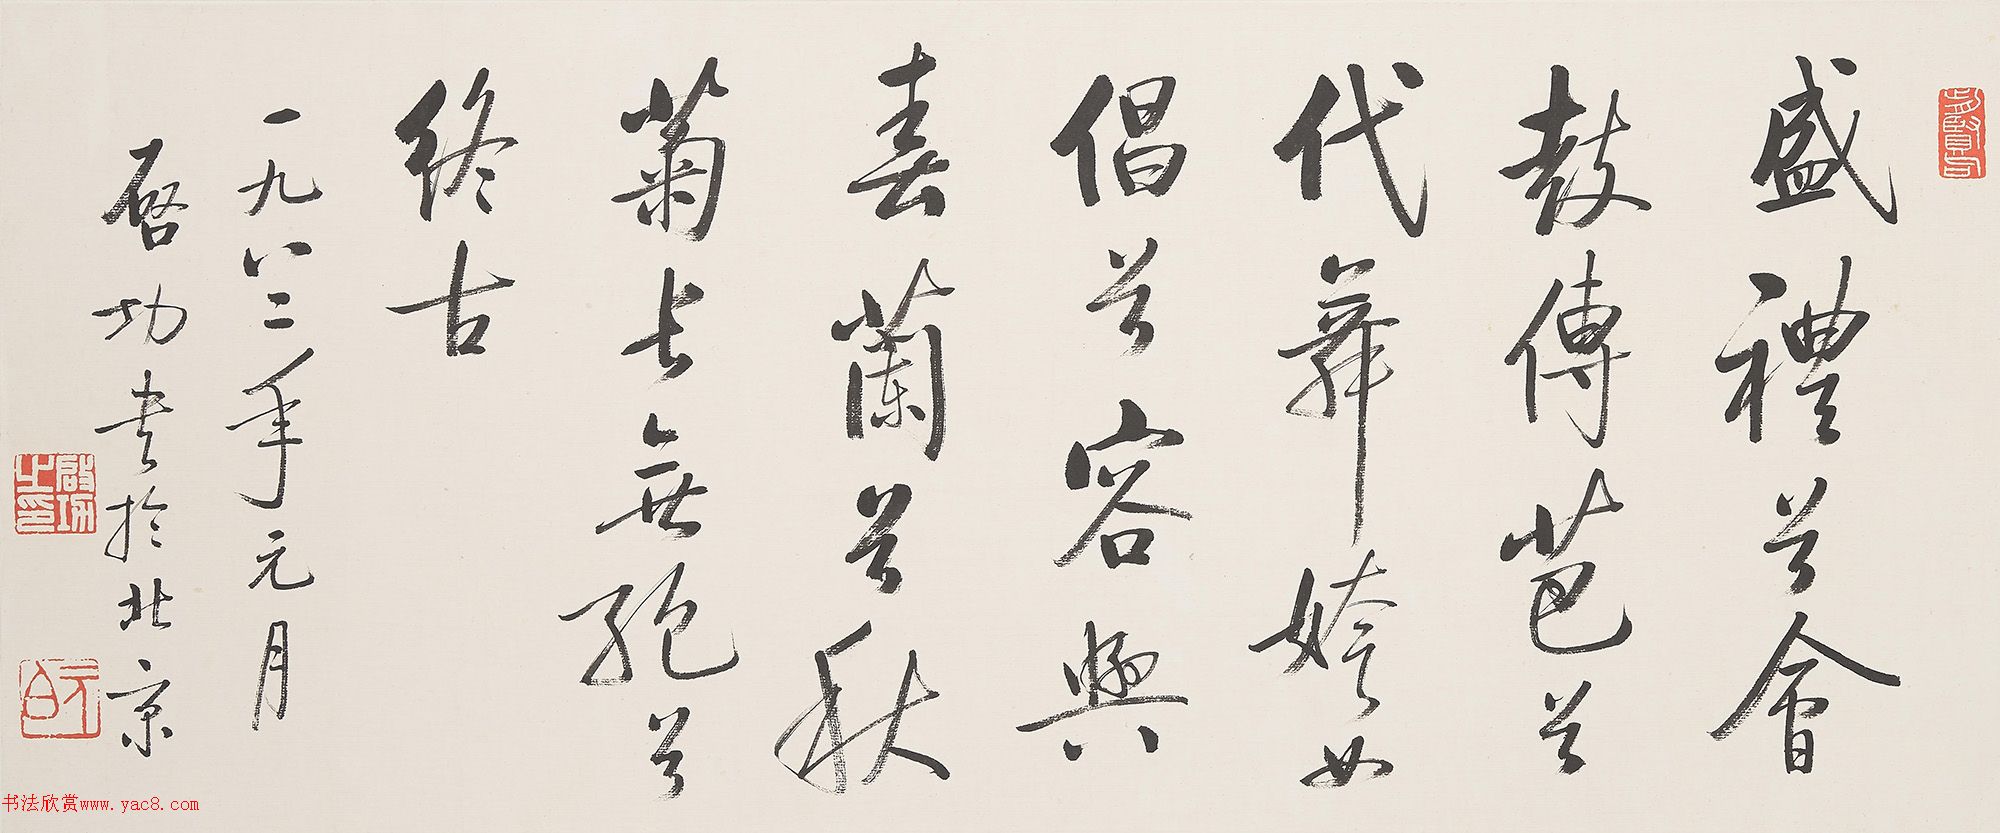 盛禮兮會
鼓傳芭兮
代舞姱女
倡兮容與
春蘭兮秋
菊長無絕兮
終古
一九八二年元月
啓功書於北京
啟功之印
元白
书法欣赏www.yac8.com